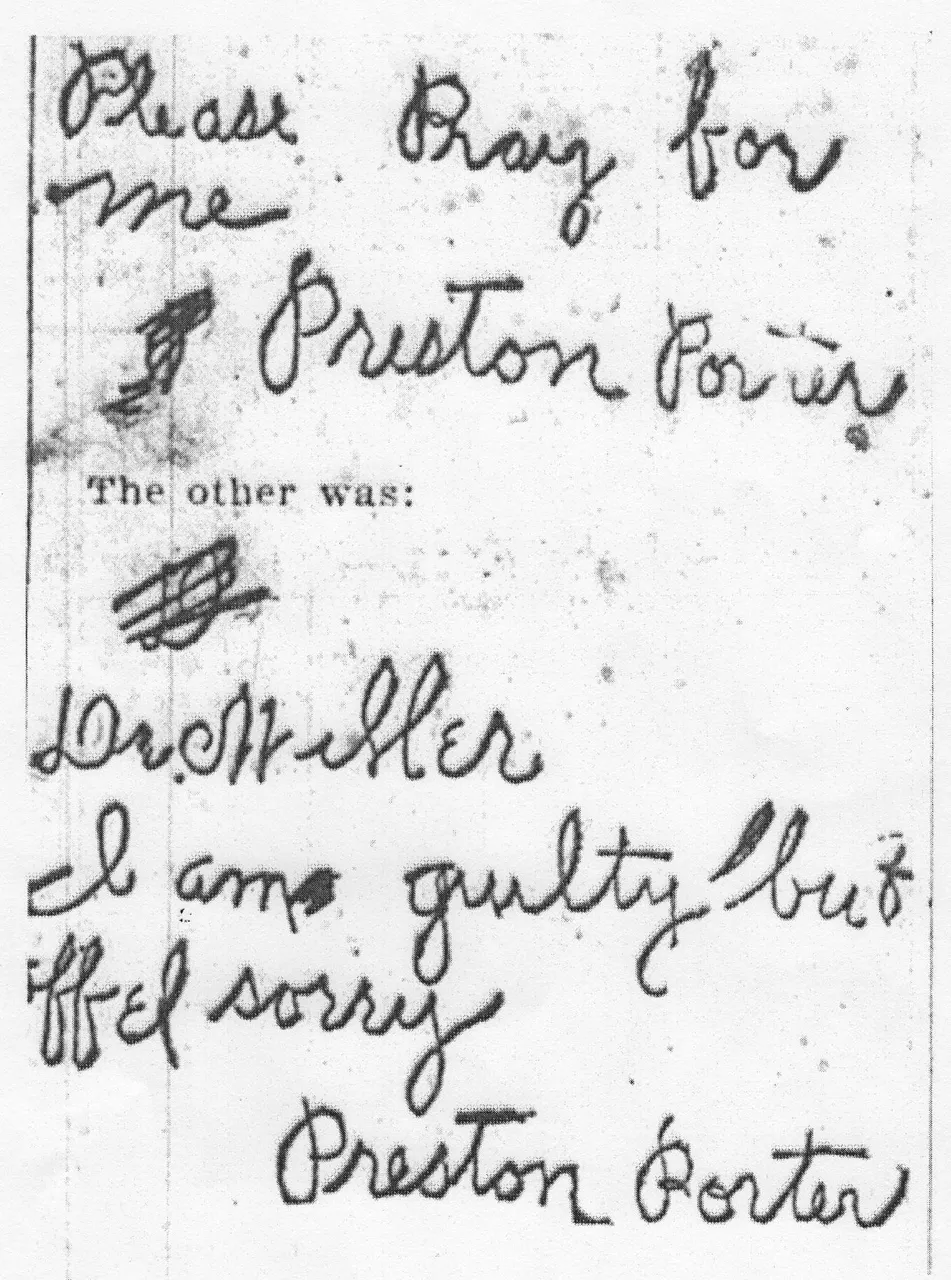 Please Pray for
me
Preston Porter
The other was:
Dr. Miller
I am guilty but
ffel sorry
Preston Porter